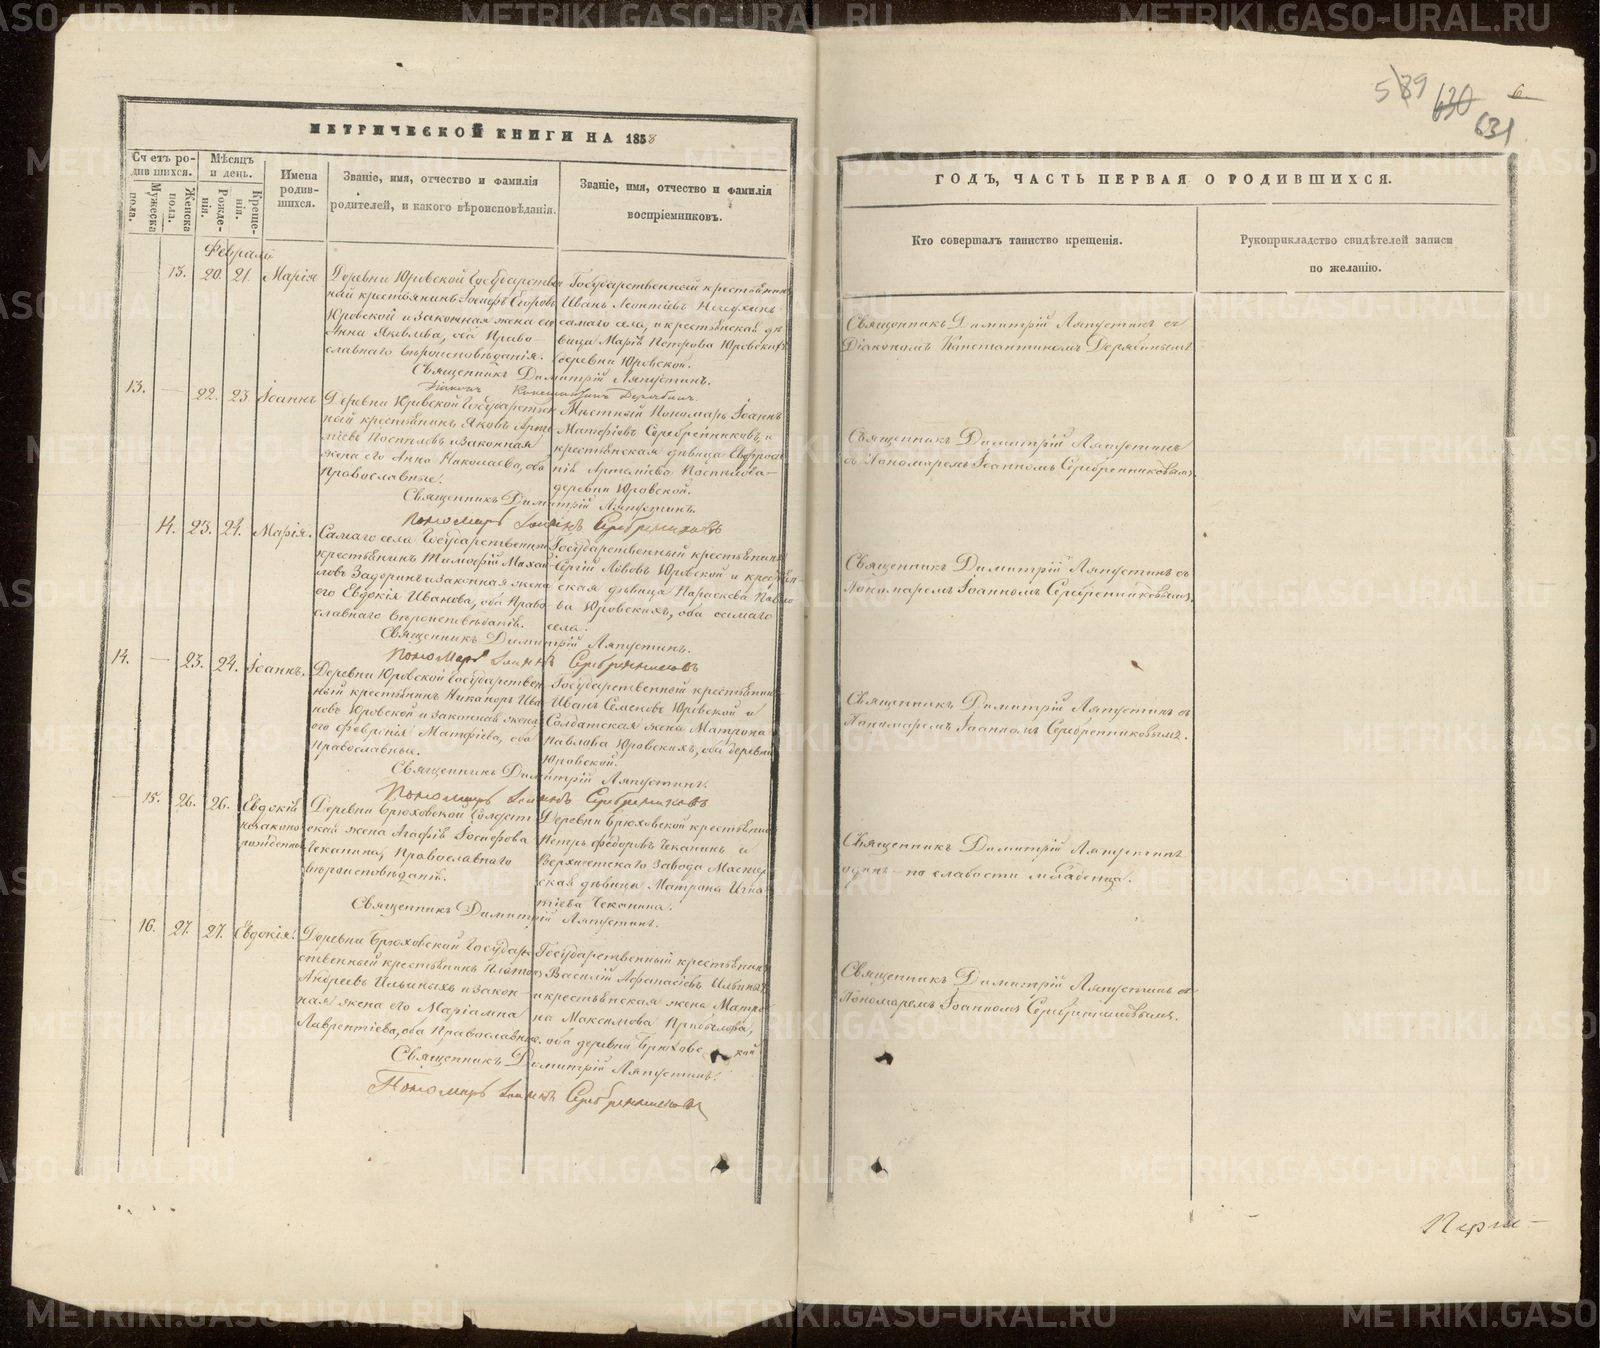 МЕТРИЧЕСКОЙ КНИГИ НА 1858
Счетъ родившихся.
Мужеска пола.
Женска пола.
Мѣсяцъ и день.
Рожденія.
Крещенія.
Имена родившихся.
Званіе, имя, отчество и фамилія
родителей, и какого вѣроисповѣданія.
Званіе, имя, отчество и фамилія
воспріемниковъ.
Февраля
13. 20. 21. Марія
Деревни Юровской Государствен
ный крестьянинъ Іосифъ Егоровъ
Юровской и законная жена его
Анна Яковлева, оба Право-
славнаго вѣроисповѣданія.
Государственной крестьянинъ
Иванъ Леонтіевъ
самаго села, и крестьянская дѣ
вица Марія Петрова Юровскихъ
деревни Юровской.
Священникъ Димитрій Ляпустинъ.
Діаконъ Константинъ Дерябинъ.
13. — 22. 23 Іоаннъ
Деревни Юровской Государствен
ный крестьянинъ Яковъ Арте
міевъ Поспѣловъ и законная
жена его Анна Николаева, оба
православные.
Мѣстный Пономарь Іоаннъ
Матфіевъ Серебренниковъ, и
крестьянская дѣвица Евфроси
нія Артеміева Поспѣлова
деревни Юровской.
Священникъ Димитрій Ляпустинъ
Пономарь Іоаннъ Серебренниковъ
14. 23. 24. Марія.
Самаго села Государственный
крестьянинъ Тимофій Михай
ловъ Задоринъ и законная жена
его Евдокія Иванова, оба Право-
славнаго вѣроисповѣданія.
Государственный крестьянинъ
Сергій Львовъ Юровской и крестьян-
ская дѣвица Параскева Павло
ва Юровскихъ, оба самаго
села.
Священникъ Димитрій Ляпустинъ.
Пономарь Іоаннъ Серебренниковъ
14. — 23. 24. Іоаннъ.
Деревни Юровской Государствен
ный крестьянинъ Никаноръ Ива
новъ Юровской и законная жена
его Февронія Матфіева, оба
Православные.
Государственной крестьянинъ
Иванъ Семеновъ Юровской и
Солдатская жена Матрона
Павлова Юровскихъ, оба деревни
Юровской.
Священникъ Димитрій Ляпустинъ.
Пономарь Іоаннъ Серебренниковъ
15. 26. 26. Евдокія
незаконо
рожденная
Деревни Брюховской Солдат
ская жена Агафія Іосифова
Чеканина, Православнаго
вѣроисповѣданія.
Деревни Брюховской крестьянинъ
Петръ Федоровъ Чеканинъ и
Верхисетскаго завода Мастер
ская дѣвица Матрона Игна
тіева Чеканина.
Священникъ Димитрій Ляпустинъ.
16. 27. 27. Евдокія.
Деревни Брюховской Государ
ственный крестьянинъ Платонъ
Андреевъ Ильиныхъ и закон-
ная жена его Маріамна
Лаврентіева, оба Православные.
Государственный крестьянинъ
Василій Афанасіевъ Ильиныхъ
и крестьянская жена Матро
на Максимова Прибылова,
оба деревни Брюховской
Священникъ Димитрій Ляпустинъ.
Пономарь Іоаннъ Серебренниковъ
589 630 6
631
ГОДЪ, ЧАСТЬ ПЕРВАЯ О РОДИВШИХСЯ.
Кто совершалъ таинство крещенія.
Рукоприкладство свидѣтелей записи
по желанію.
Священникъ Димитрій Ляпустинъ съ
Діакономъ Константиномъ Дерябинымъ
Священникъ Димитрій Ляпустинъ
съ Пономаремъ Іоанномъ Серебренниковымъ.
Священникъ Димитрій Ляпустинъ съ
Пономаремъ Іоанномъ Серебренниковымъ.
Священникъ Димитрій Ляпустинъ съ
Пономаремъ Іоанномъ Серебренниковымъ.
Священникъ Димитрій Ляпустинъ
одинъ — по слабости младенца.
Священникъ Димитрій Ляпустинъ съ
Пономаремъ Іоанномъ Серебренниковымъ.
METRIKI.GASO-URAL.RU